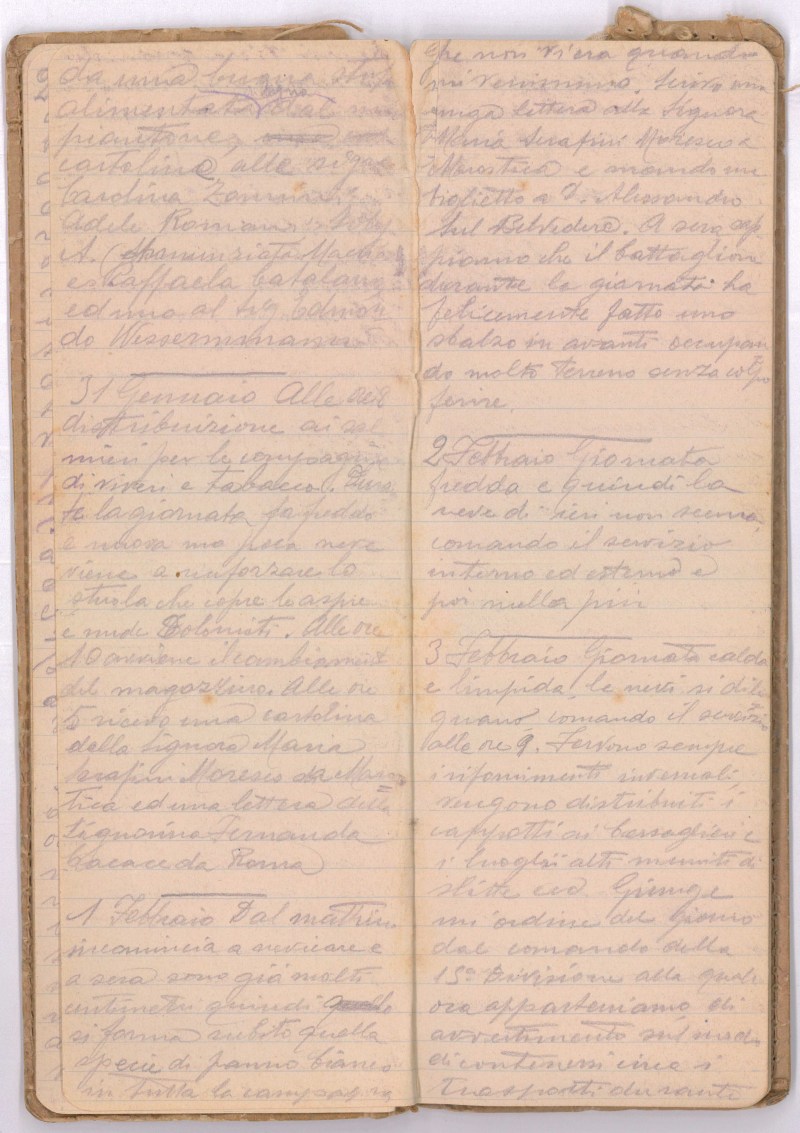 da una buona stufa
alimentata dal mio
legna
piantone,
cartoline alle sig.ne
Carolina
Adele Romano
A. Annunziata
e Raffaela Catalano
ed uno al sig Edmon
do Wessermann
31 Gennaio Alle ore 8
distribuizione ai sol
mieri per le compagnie
di viveri e tabacco. Duran
te la giornata fa freddo
e nuova ma poca neve
viene a rinforzare lo
strola che copre le aspre
e nude Dolomiti. Alle ore
10 avviene il cambiament
del magazzino. Alle ore
5 ricevo una cartolina
della Signora Maria
Serafini Moresco da Maro
tica ed una lettera della
Signorina Fernanda
Cacace da Roma
1 Febbraio Dal mattino
incomincia a nevicare e
a sera sono già molti
centimetri quindi
si forma subito quella
specie di panno bianco
in tutta la campagna
che non v'era quando
mi venimmo. Scrivo una
lunga lettera alla Signora
Maria Serafini Moresco a
Marostica e mando un
biglietto a S. Alessandro
sul Belvedere. A sera sap
piamo che il battaglione
durante la giornata ha
felicemente fatto uno
sbalzo in avanti occupan
do molto terreno senza colpo
ferire.
2 Febbraio Giornata
fredda e quindi la
neve di ieri non scema,
comando il servizio
interno ed esterno e
poi nulla più
3 Febbraio Giornata calda
e limpida, le nevi si dile
guano, comando il servizio
alle ore 9. Fervono sempre
i rifornimenti invernali,
vengono distribuiti i
cappotti ai bersaglieri e
i luoghi alti muniti di
slitte ecc. Giunge
un ordine del Giorno
dal comando della
15° Divisione alla quale
ora apparteniamo di
avvertimento sul modo
di contenersi circa i
trasporti durante